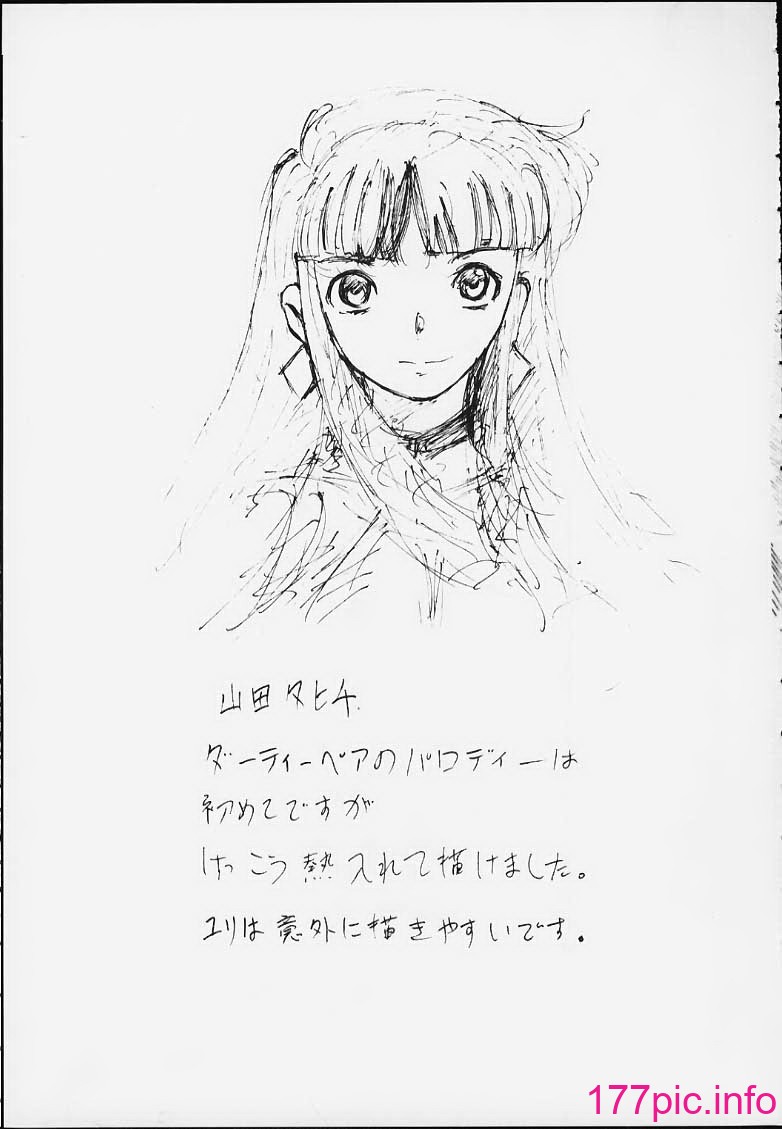 山田タヒチ.
ダーティーペアのパロディーは
初めてですが
けっこう熱入れて描けました。
ユリは意外に描きやすいです。
177pic.info